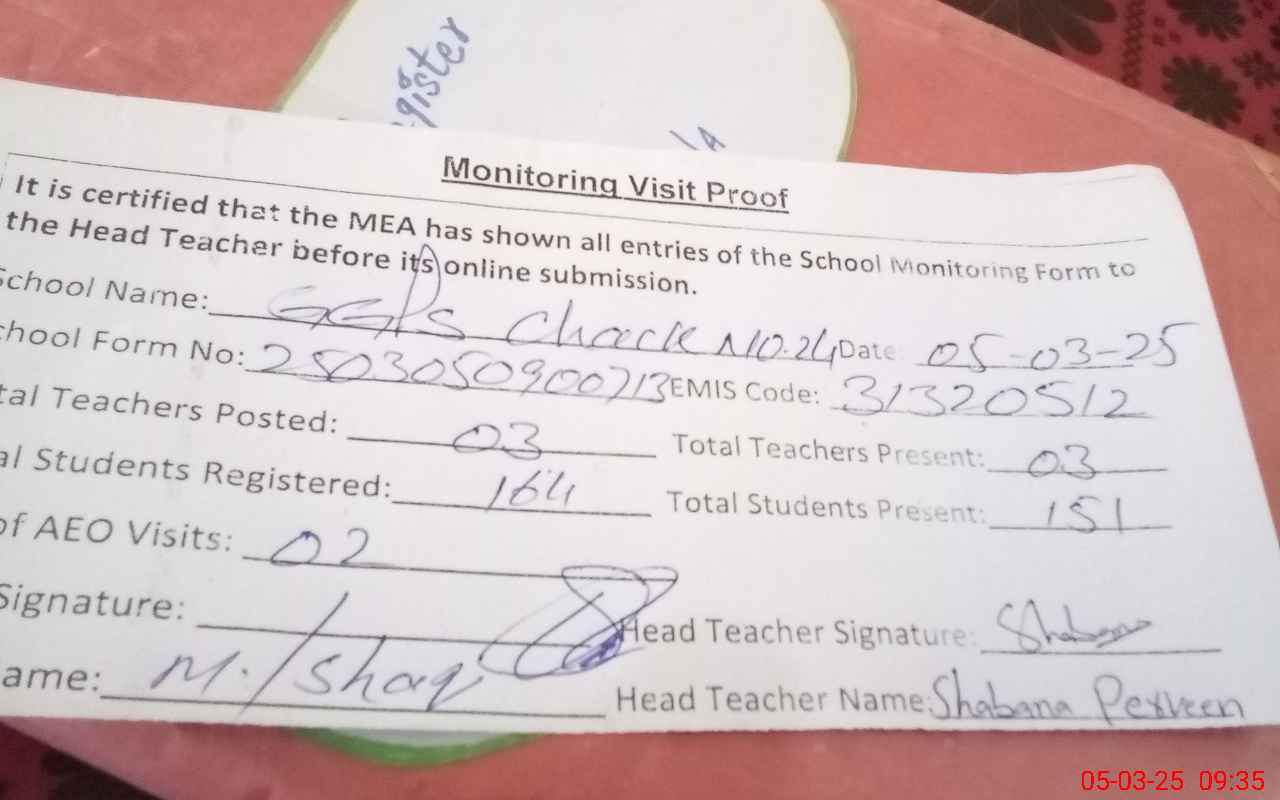 gister
Monitoring Visit Proof
It is certified that the MEA has shown all entries of the School Monitoring Form to
the Head Teacher before its online submission.
School Name: GGPS Chack NO.24 Date: 05-03-25
hool Form No: 2503050900713 EMIS Code: 31320512
tal Teachers Posted: 03 Total Teachers Present: 03
al Students Registered: 164 Total Students Present: 151
of AEO Visits: 02
Signature: Head Teacher Signature: Shabana
ame: M. Ishaq Head Teacher Name: Shabana Perveen
05-03-25 09:35